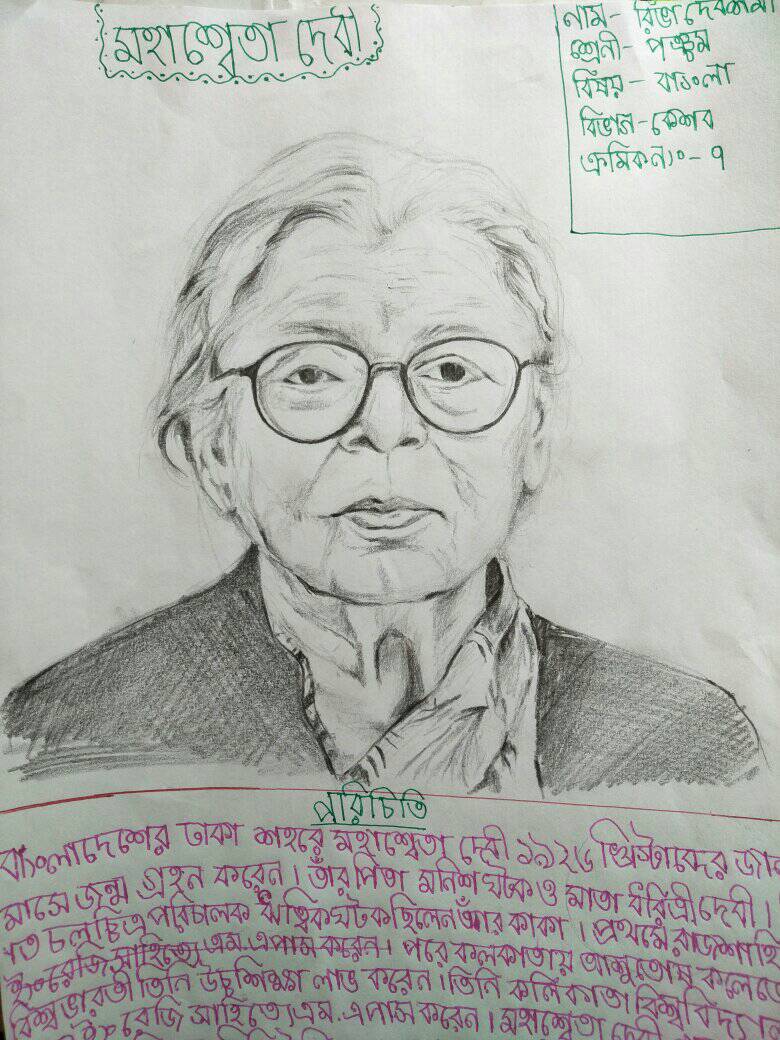 মহাশ্বেতা দেবী
নাম - রিভা দেবশর্মা
শ্রেনী - পঞ্চম
বিষয় - বাংলা
বিভাগ - কেশব
ক্রমিক নং - ৭
পরিচিতি
বাংলাদেশের ঢাকা শহরে মহাশ্বেতা দেবী ১৯২৬ খ্রিস্টাব্দের
মাসে জন্ম গ্রহন করেন। তাঁর পিতা মনিশ ঘটক ও মাতা ধরিত্রী দেবী।
চলচ্চিত্র পরিচালক ঋত্বিক ঘটক ছিলেন তাঁর কাকা। প্রথমে
ইংরেজি সাহিত্যে এম.এ পাস করেন। পরে কলকাতায় আশুতোষ কলেজে
বিশ্বভারতী তিনি উচ্চ শিক্ষা লাভ করেন। তিনি কলিকাতা
ইংরেজি সাহিত্যে এম.এ পাস করেন। মহাশ্বেতা দেবী